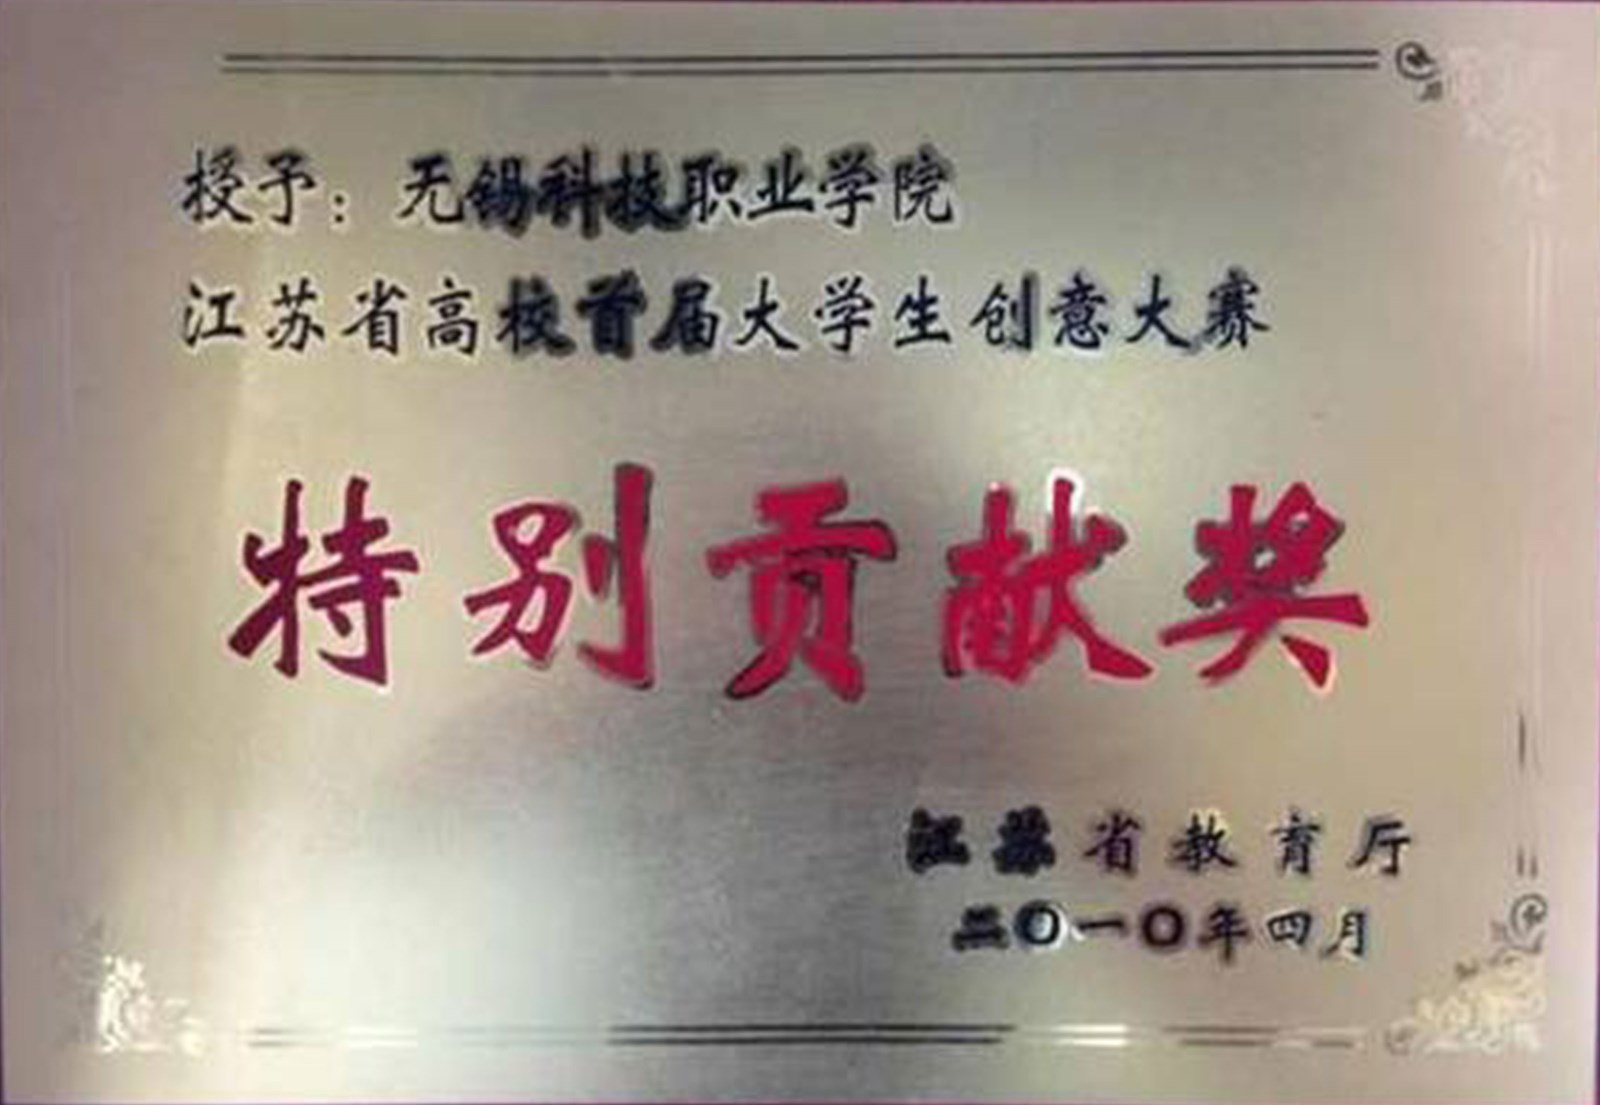 授予：无锡科技职业学院
江苏省高校首届大学生创意大赛
特别贡献奖
江苏省教育厅
二〇一〇年四月